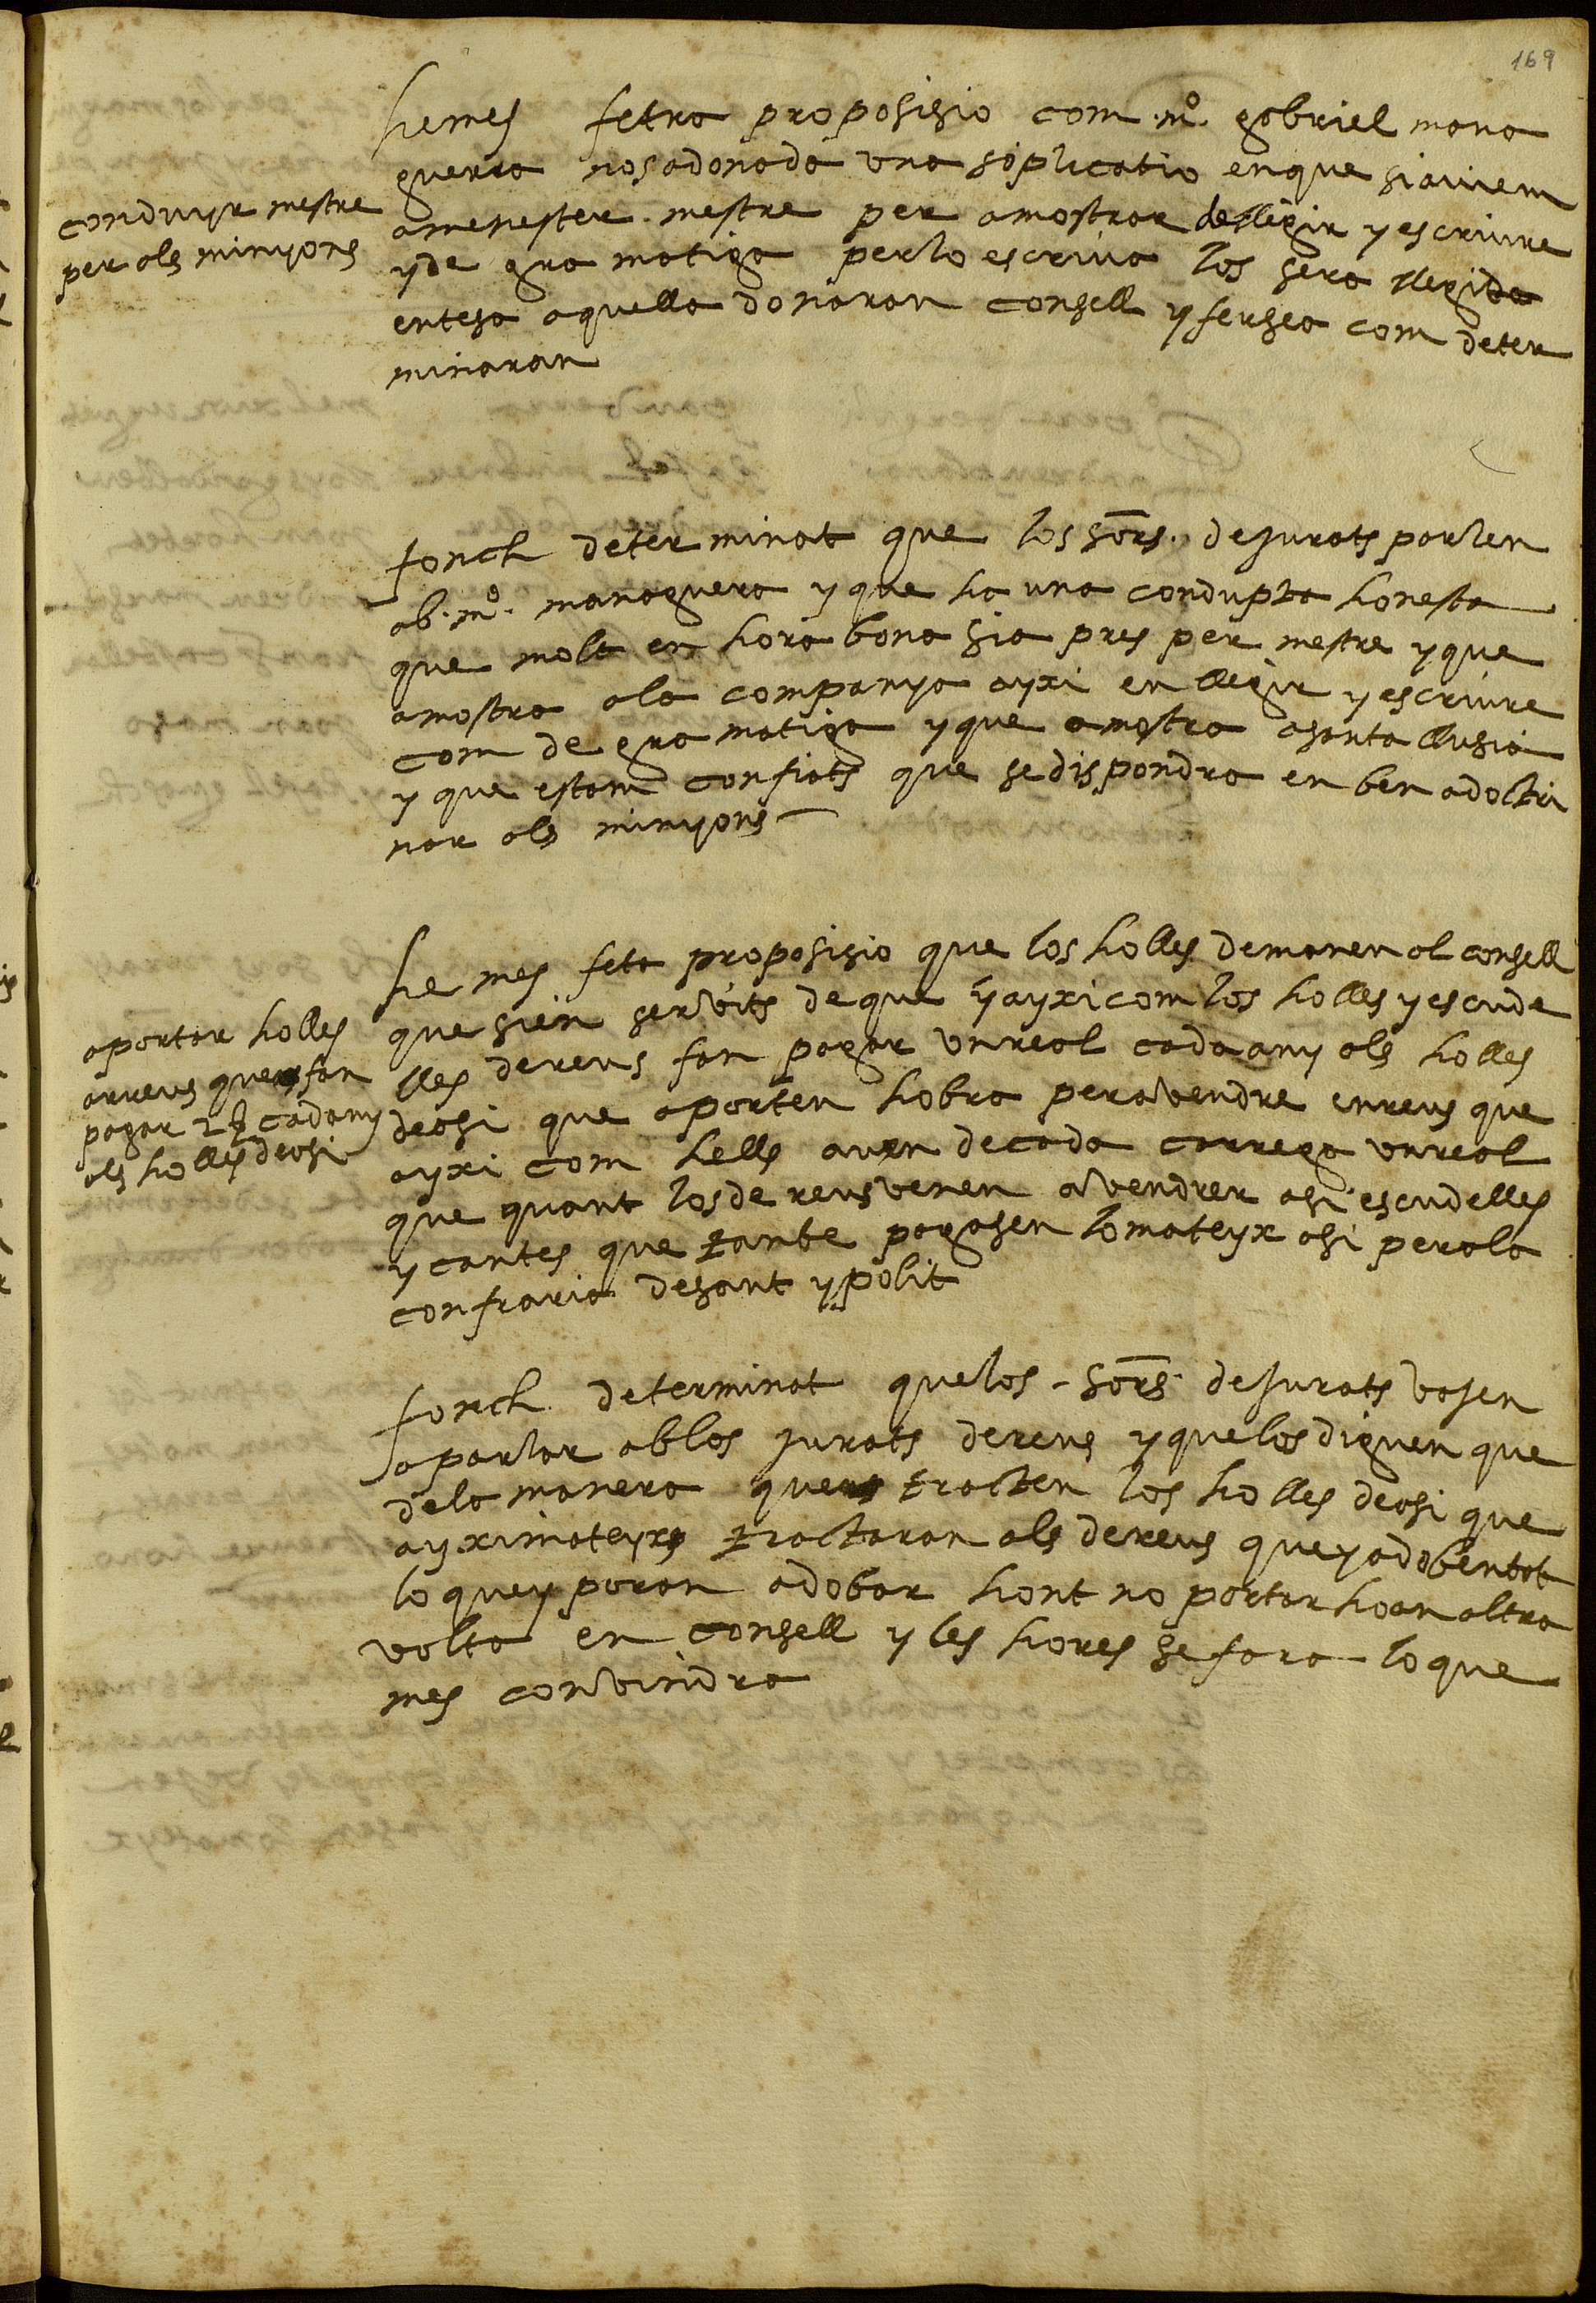 169
hemes fetra proposisio com mº gabriel mana
guerra nosadonada una soplicatio enque siaviem
conduyr mestre
per als minyons
amenester mestre per amostrar de llegir y escriure
y de gramatiga perlo escriva los sera llegida
entesa aquella donaran consell y fersea com deter
minaran
fonch determinat que los sors. de jurats parlen
ab mº managuera y que ha una condupta honesta
que molt en hora bona sia pres per mestre y que
amostra ala companya ayxi en llegir y escriure
com de gramatiga y que amostra asanta llusia
y que estam confiats que se dispondra en ben adoltri
nar als minyons
he mes feta proposisio que los holles demanen al consell
aportar holles
arreus que fan
pagar 1 cadany
als holles deasi
que sien servits de que y ayxi com los holles y escude
lles dereus fan pagar un real cada any als holles
deasi que aporten hobra peravendre enreus que
ayxi com hells aven de cada carrega un real
que quant los de reus venen avendrer asi escudelles
y cantes que tanbe pagasen lo mateyx asi perala
confraria desant ypolit
fonch determinat que los sors. de jurats vajen
aparlar ablos jurats dereus y quelos diguen que
dela manera que tracten los holles deasi que
ayximateyx tractaran als dereus que y adoben tot
lo quey poran adobar hont no portar hoan altra
volta en consell y les hores se fara lo que
mes convindra